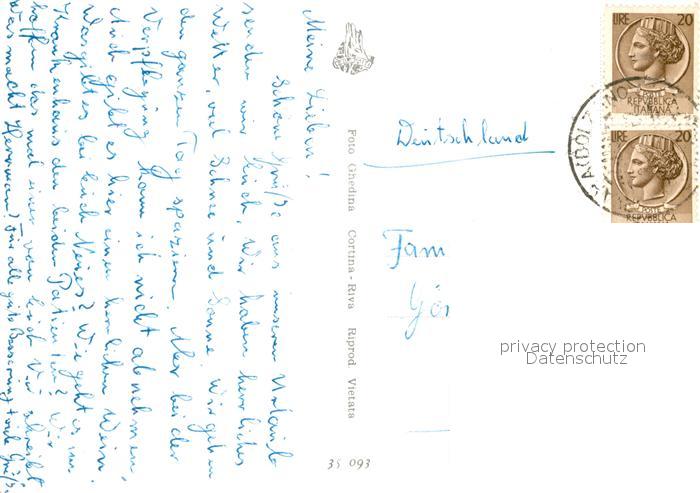 Meine Lieben!
Schöne Grüße aus unserem Urlaub
senden wir Euch. Wir haben herrliches
Wetter, viel Schnee und Sonne. Wir gehen
den ganzen Tag spazieren. Aber bei der
Verpflegung kann ich nicht abnehmen.
Auch gibt es hier einen herrlichen Wein.
Was gibt es bei Euch Neues? Wie geht es im
Krankenhaus den beiden Patienten? Wir
hoffen das mal einer von Euch schreibt
Was macht Hermann? Für alle gute Besserung + viele Grüße
Foto Ghedina Cortina - Riva Riprod Vietata
35 093
Deutschland
Fam
Gör
LIRE 20
POSTE
REPVBBLICA
ITALIANA
LIRE 20
POSTE
REPVBBLICA
privacy protection
Datenschutz